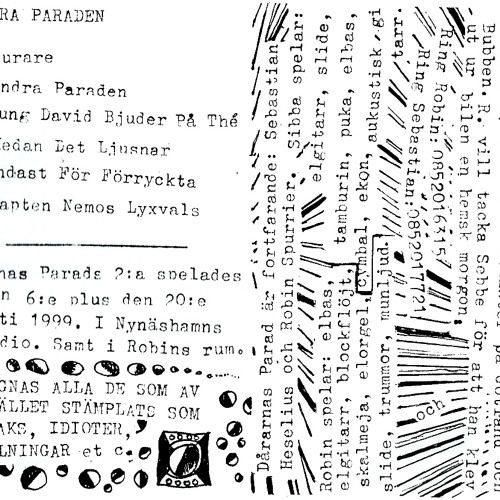 RA PARADEN
urare
ndra Paraden
ung David Bjuder På Thé
edan Det Ljusnar
ndast För Förryckta
apten Nemos Lyxvals
nas Parads 2:a spelades
n 6:e plus den 20:e
ti 1999. I Nynäshamns
dio. Samt i Robins rum.
GNAS ALLA DE SOM AV
ÄLLET STÄMPLATS SOM
AKS, IDIOTER,
LNINGAR et c.
7
Dårarnas Parad är fortfarande: Sebastian
Heselius och Robin Spurrier. Sibba spelar:
Robin spelar: elbas, elgitarr, slide,
elgitarr, blockflöjt, tamburin, puka, elbas,
skalmeja, elorgel, cymbal, ekon, aukustisk gi
slide, trummor, munljud. tarr.
och
Ring Sebastian: 0852017721
Ring Robin: 0852016315
ut ur bilen en hemsk morgon.
Bubben. R. vill tacka Sebbe för att han klev